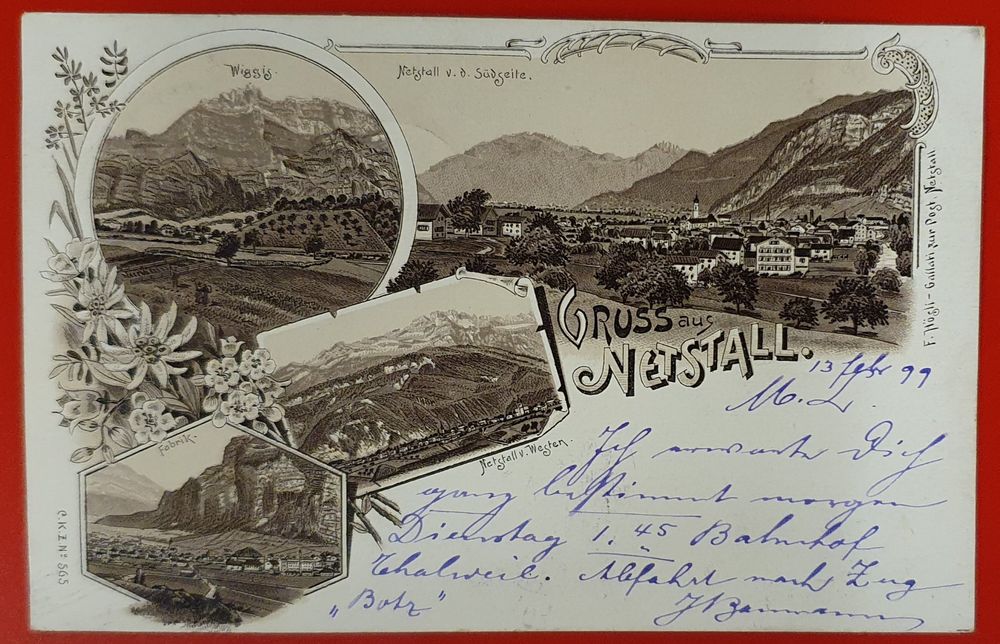 Wiggis.
Netstall v. d. Südseite.
F. Hösli-Gallati zur Post, Netstall
GRUSS aus
NETSTALL.
Netstall v. Westen.
Fabrik.
C.K.Z. Nº 565
13 Febr 99
M. L.
Ich erwarte Dich
ganz bestimmt morgen
Dienstag 1.45 Bahnhof
Thalweil. Abfahrt nach Zug
„Botz"
J Baumann